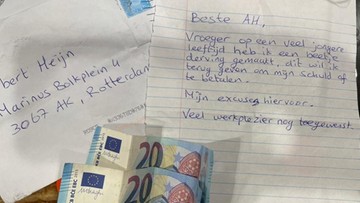 bert Heijn
Marinus Bolkplein 4
3067 AK, Rotterdam
Beste AH,
Vroeger op een veel jongere
leeftijd heb ik een beetje
derving gemaakt, dit wil ik
terug geven om mijn schuld af
te betalen.
Mijn excuses hiervoor.
Veel werkplezier nog toegewenst
20
20